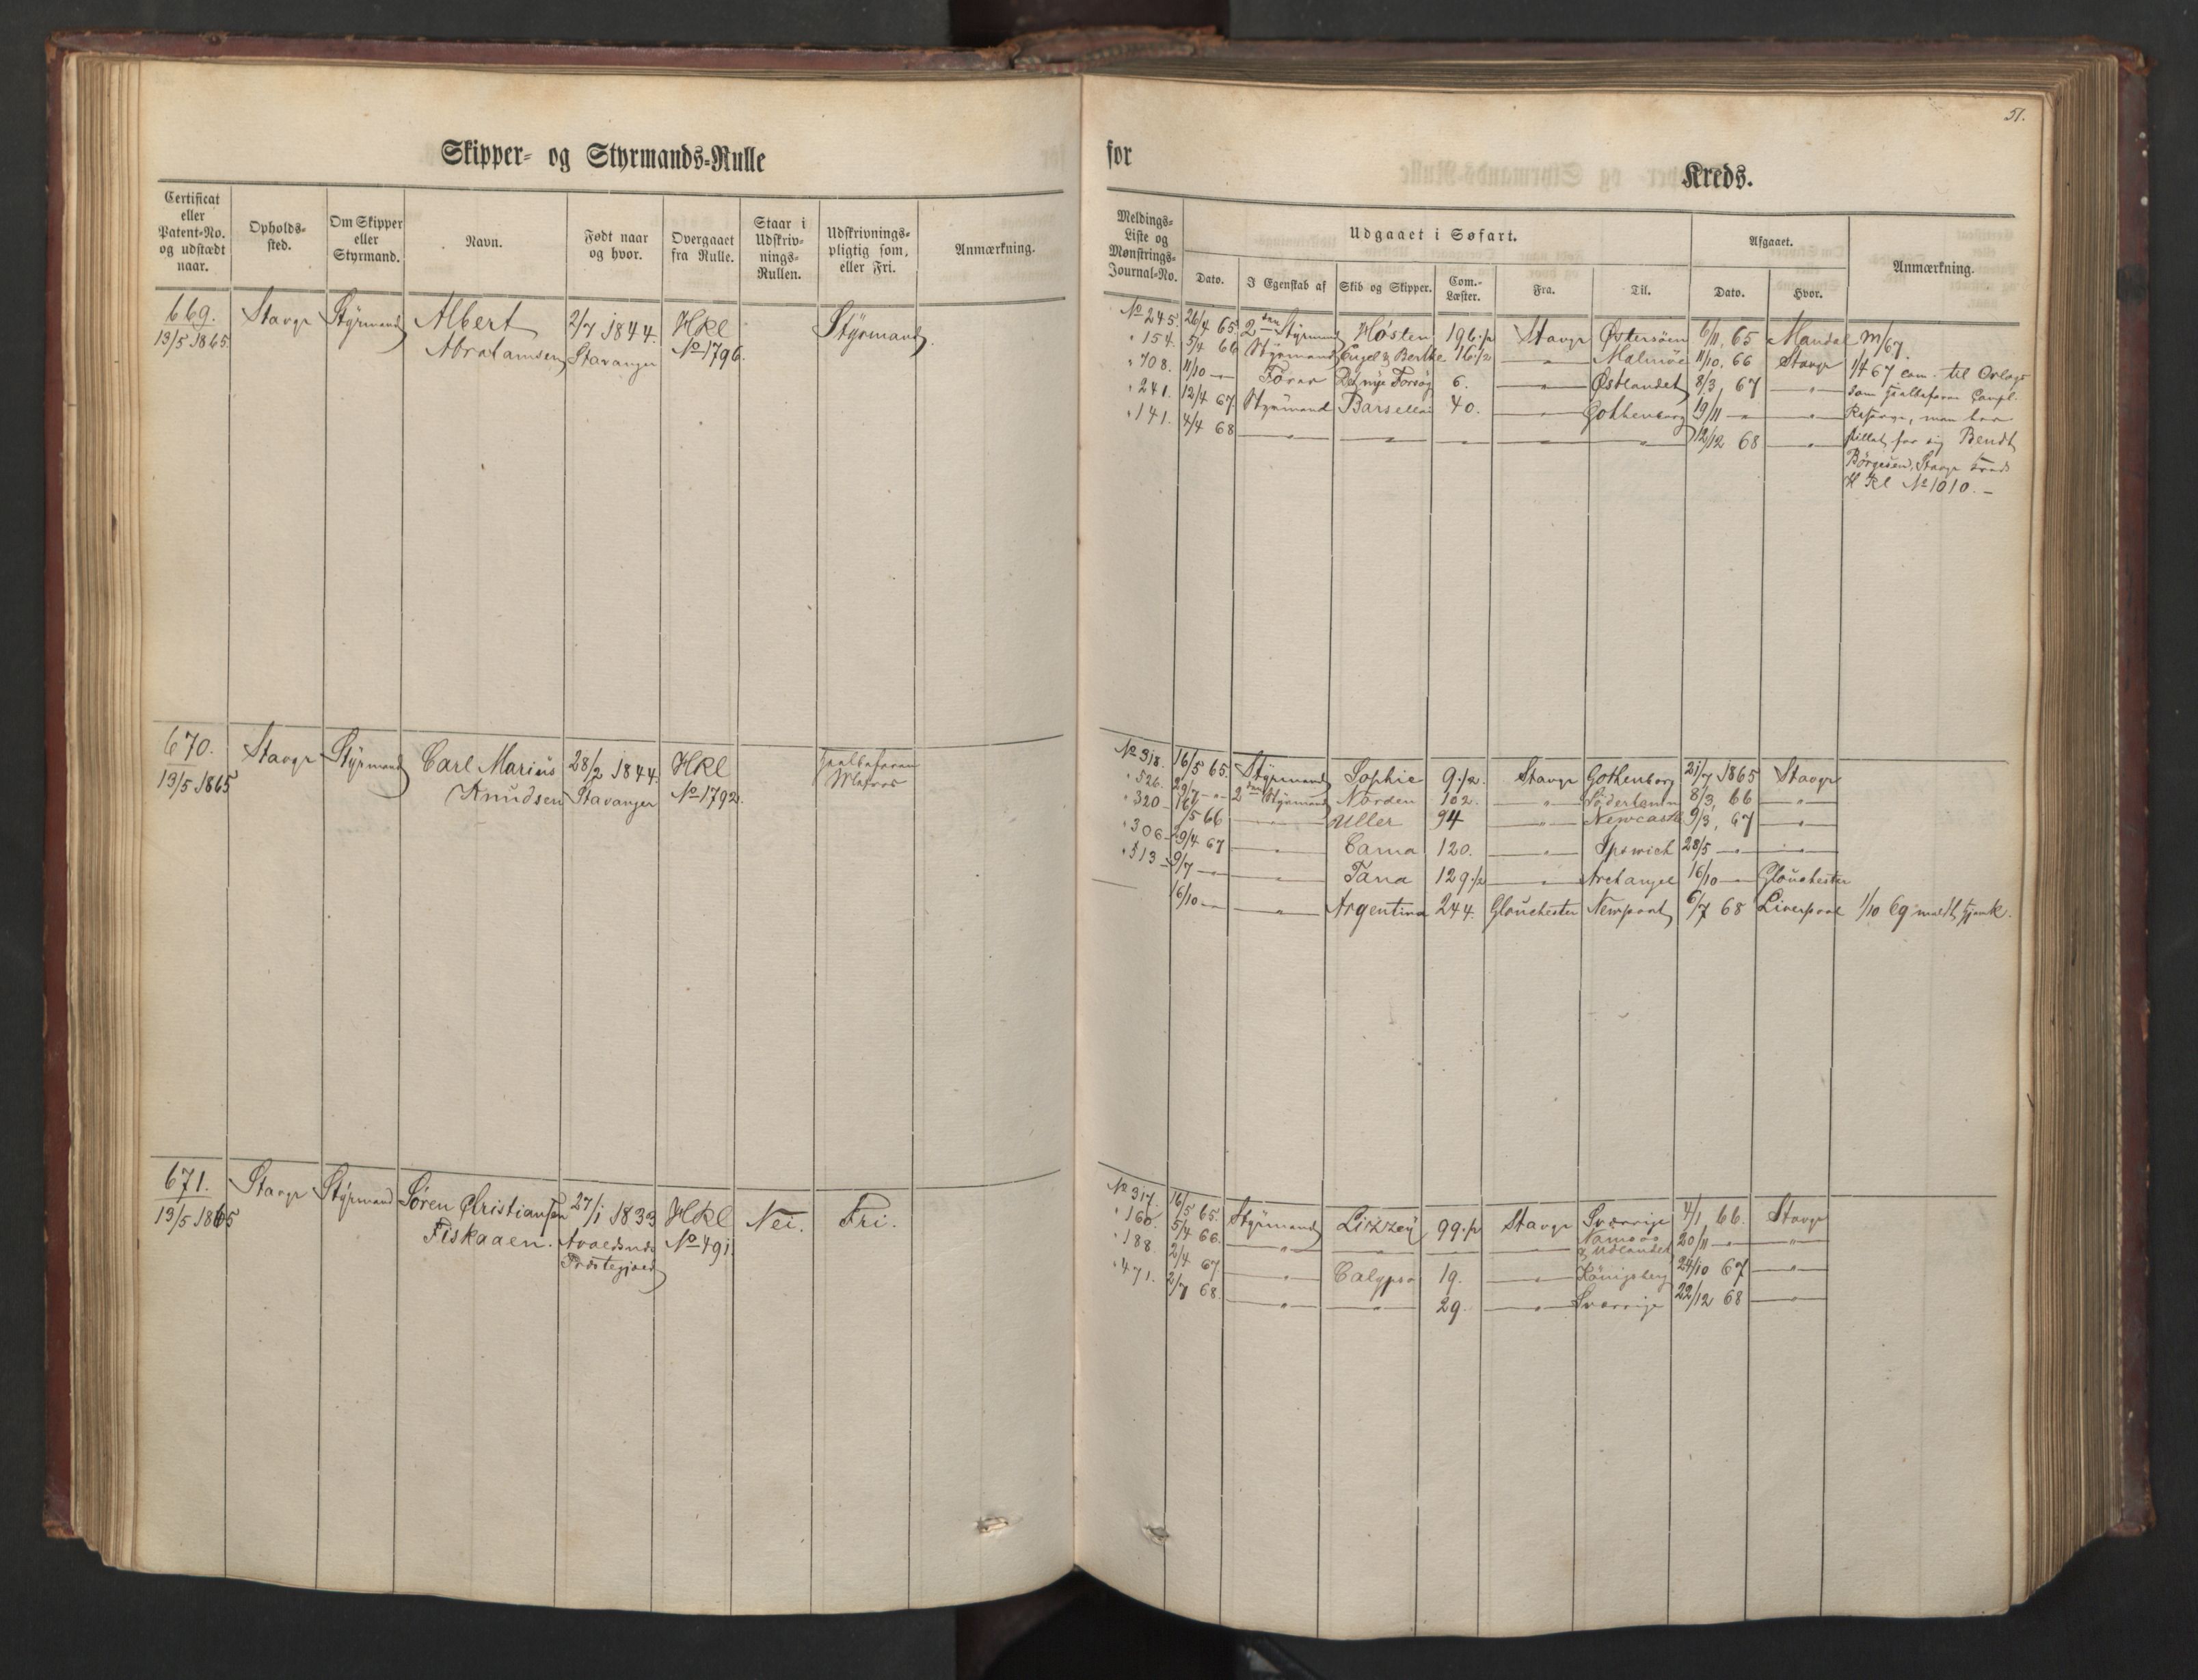 51.
Skipper- og Styrmands-Rulle
for
Kreds.
Certificat eller Patent-No. og udstædt naar.
Opholds-sted.
Om Skipper eller Styrmand.
Navn.
Født naar og hvor.
Overgaaet fra Rulle.
Staar i Udskriv-nings-Rullen.
Udskrivnings-pligtig som, eller Fri.
Anmærkning.
Meldings-Liste og Mønstrings-Journal-No.
Udgaaet i Søfart.
Dato. I Egenskab af Skib og Skipper. Com.-Læster. Fra. Til.
Afgaaet.
Dato. Hvor.
Anmærkning.
669. Stavgr Styrmand Albert 2/7 1844. HKl Styrmand.
13/5 1865. Abrahamsen Stavanger No 1796.
No 245. 26/4 65. 2den Styrmand Høsten 196 1/2 Stavgr Østersöen 6/11, 65 Mandal M/67.
" 154. 5/4 66 Styrmand Engel & Berthe 16 1/2 " Malmöe 11/10, 66 Stavgr
" 708. 11/10 " Förer Det nye Forsøg 6. " Østlandet 8/3, 67 "
" 241. 12/4 67. Styrmand Barsellai 40. " Gothenborg 19/11 " "
" 141. 4/4 68 " " " " " 12/12 68 "
1/4 67 com. til Orlogs
som
Reserve, men har
stillet for sig Bendt
Börgesen, Stavgr Kreds
H Kl No 1010. –
670. Stavgr Styrmand Carl Marius 28/2 1844. HKl
13/5 1865 Knudsen Stavanger No 1792. Matros
No 318. 16/5 65. Styrmand Sophie 9 1/2. Stavgr Gothenborg 21/7 1865 Stavgr
" 526. 29/7 " 2den Styrmand Norden 102. " 8/3, 66 "
" 320 /5 66 " Uller 94 " Newcastle 9/3, 67 "
" 306 29/4 67 " Cama 120. " Ipswich 28/5 " "
" 513 9/7 " " Tana 129 1/2 " Archangel 16/10 " Glouchester
— 16/10 " " Argentina 244. Glouchester Newport 6/7 68 Liverpool 1/10 69 meldt
671. Stavgr Styrmand Søren Christiansen 27/1 1833 HKl Nei. Fri.
13/5 1865 Fiskaaen. Avaldsnds No 491.
Præstegjæld
No 317. 16/5 65. Styrmand Lizzzey 99 1/2 Stavgr Sverrige 4/1, 66. Stavgr
" 160. 5/4 66. " " " " Namsos & Udlandet 20/11 " "
" 188 2/4 67 " Calypso 19. " Königsberg 24/10 67 "
" 471. 2/7 68. " " 29. " Sverrige 22/12 68 "